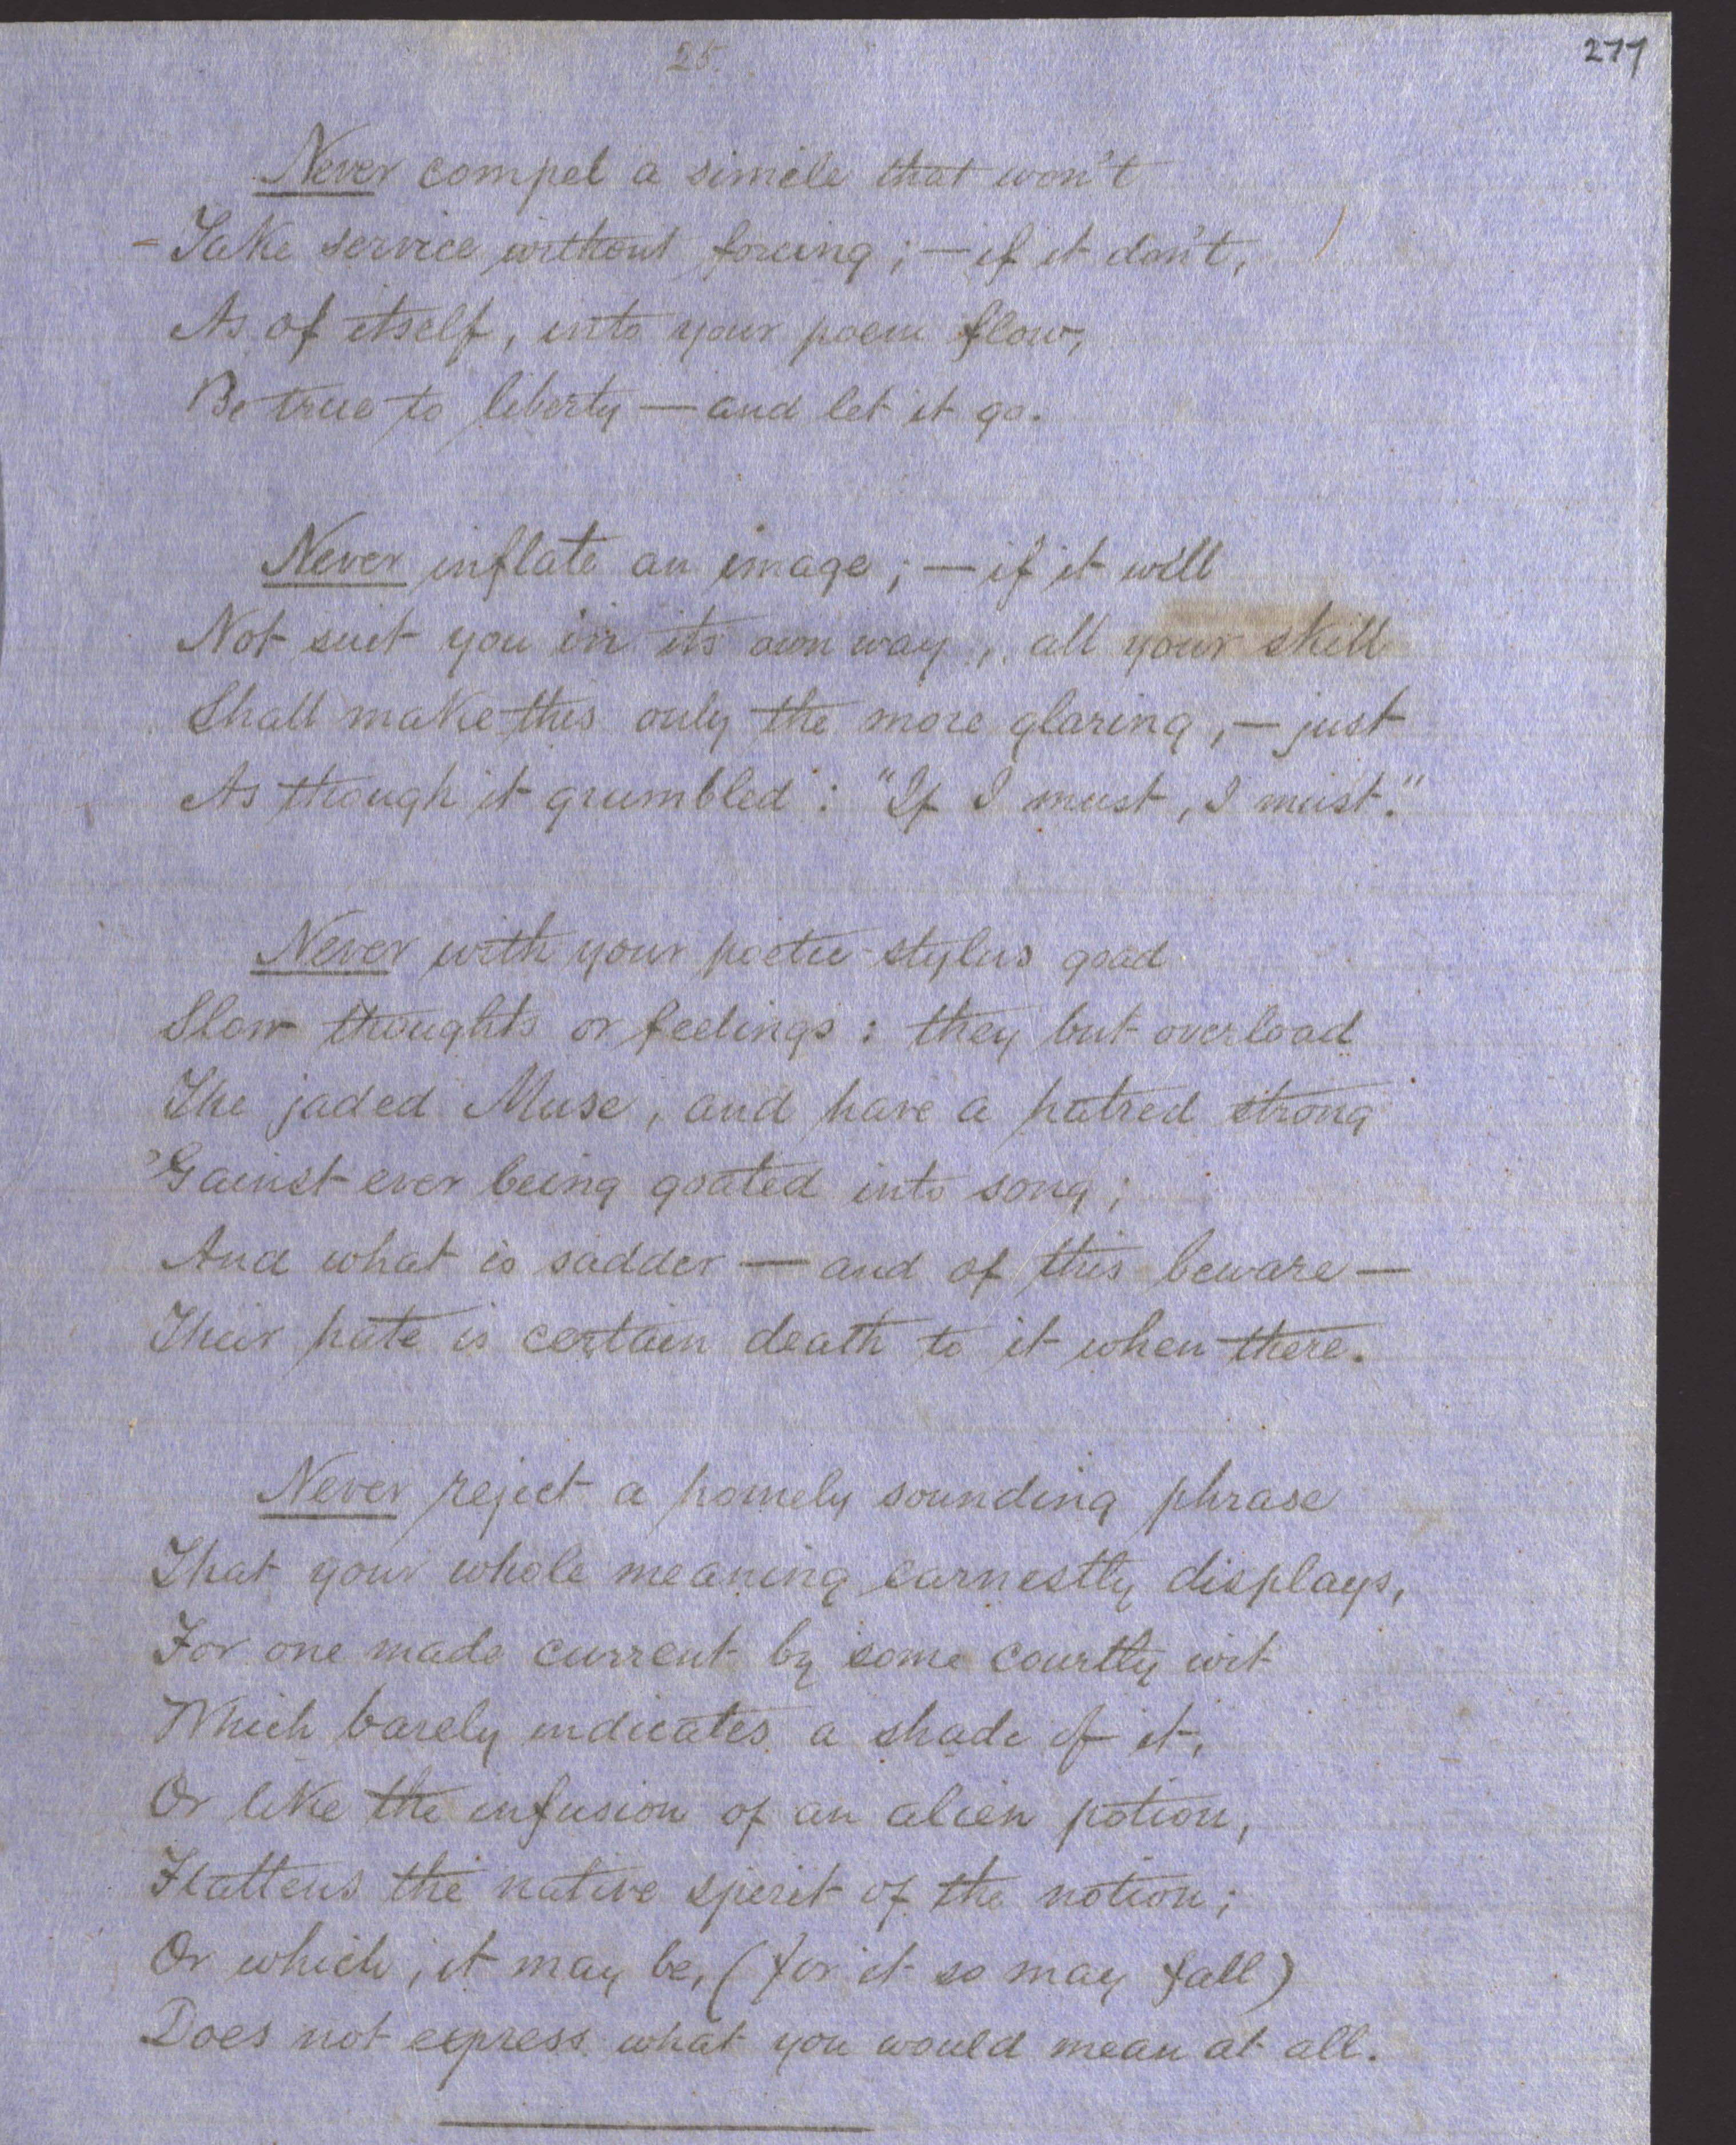 25.
277
Never compel a simile that won't
Take service without forcing; — if it don't,
As of itself, into your poem flow,
Be true to liberty — and let it go.
Never inflate an image; — if it will
Not suit you in its own way, all your skill
Shall make this only the more glaring, — just
As though it grumbled: "If I must, I must."
Never with your poetic-stylus goad
Slow thoughts or feelings: they but overload
The jaded Muse, and have a hatred strong
'Gainst ever being goated into song;
And what is sadder — and of this beware —
Their hate is certain death to it when there.
Never reject a homely sounding phrase
That your whole meaning earnestly displays,
For one made current by some courtly wit
Which barely indicates a shade of it,
Or like the infusion of an alien potion,
Flattens the native spirit of the notion;
Or which, it may be, (for it so may fall)
Does not express what you would mean at all.